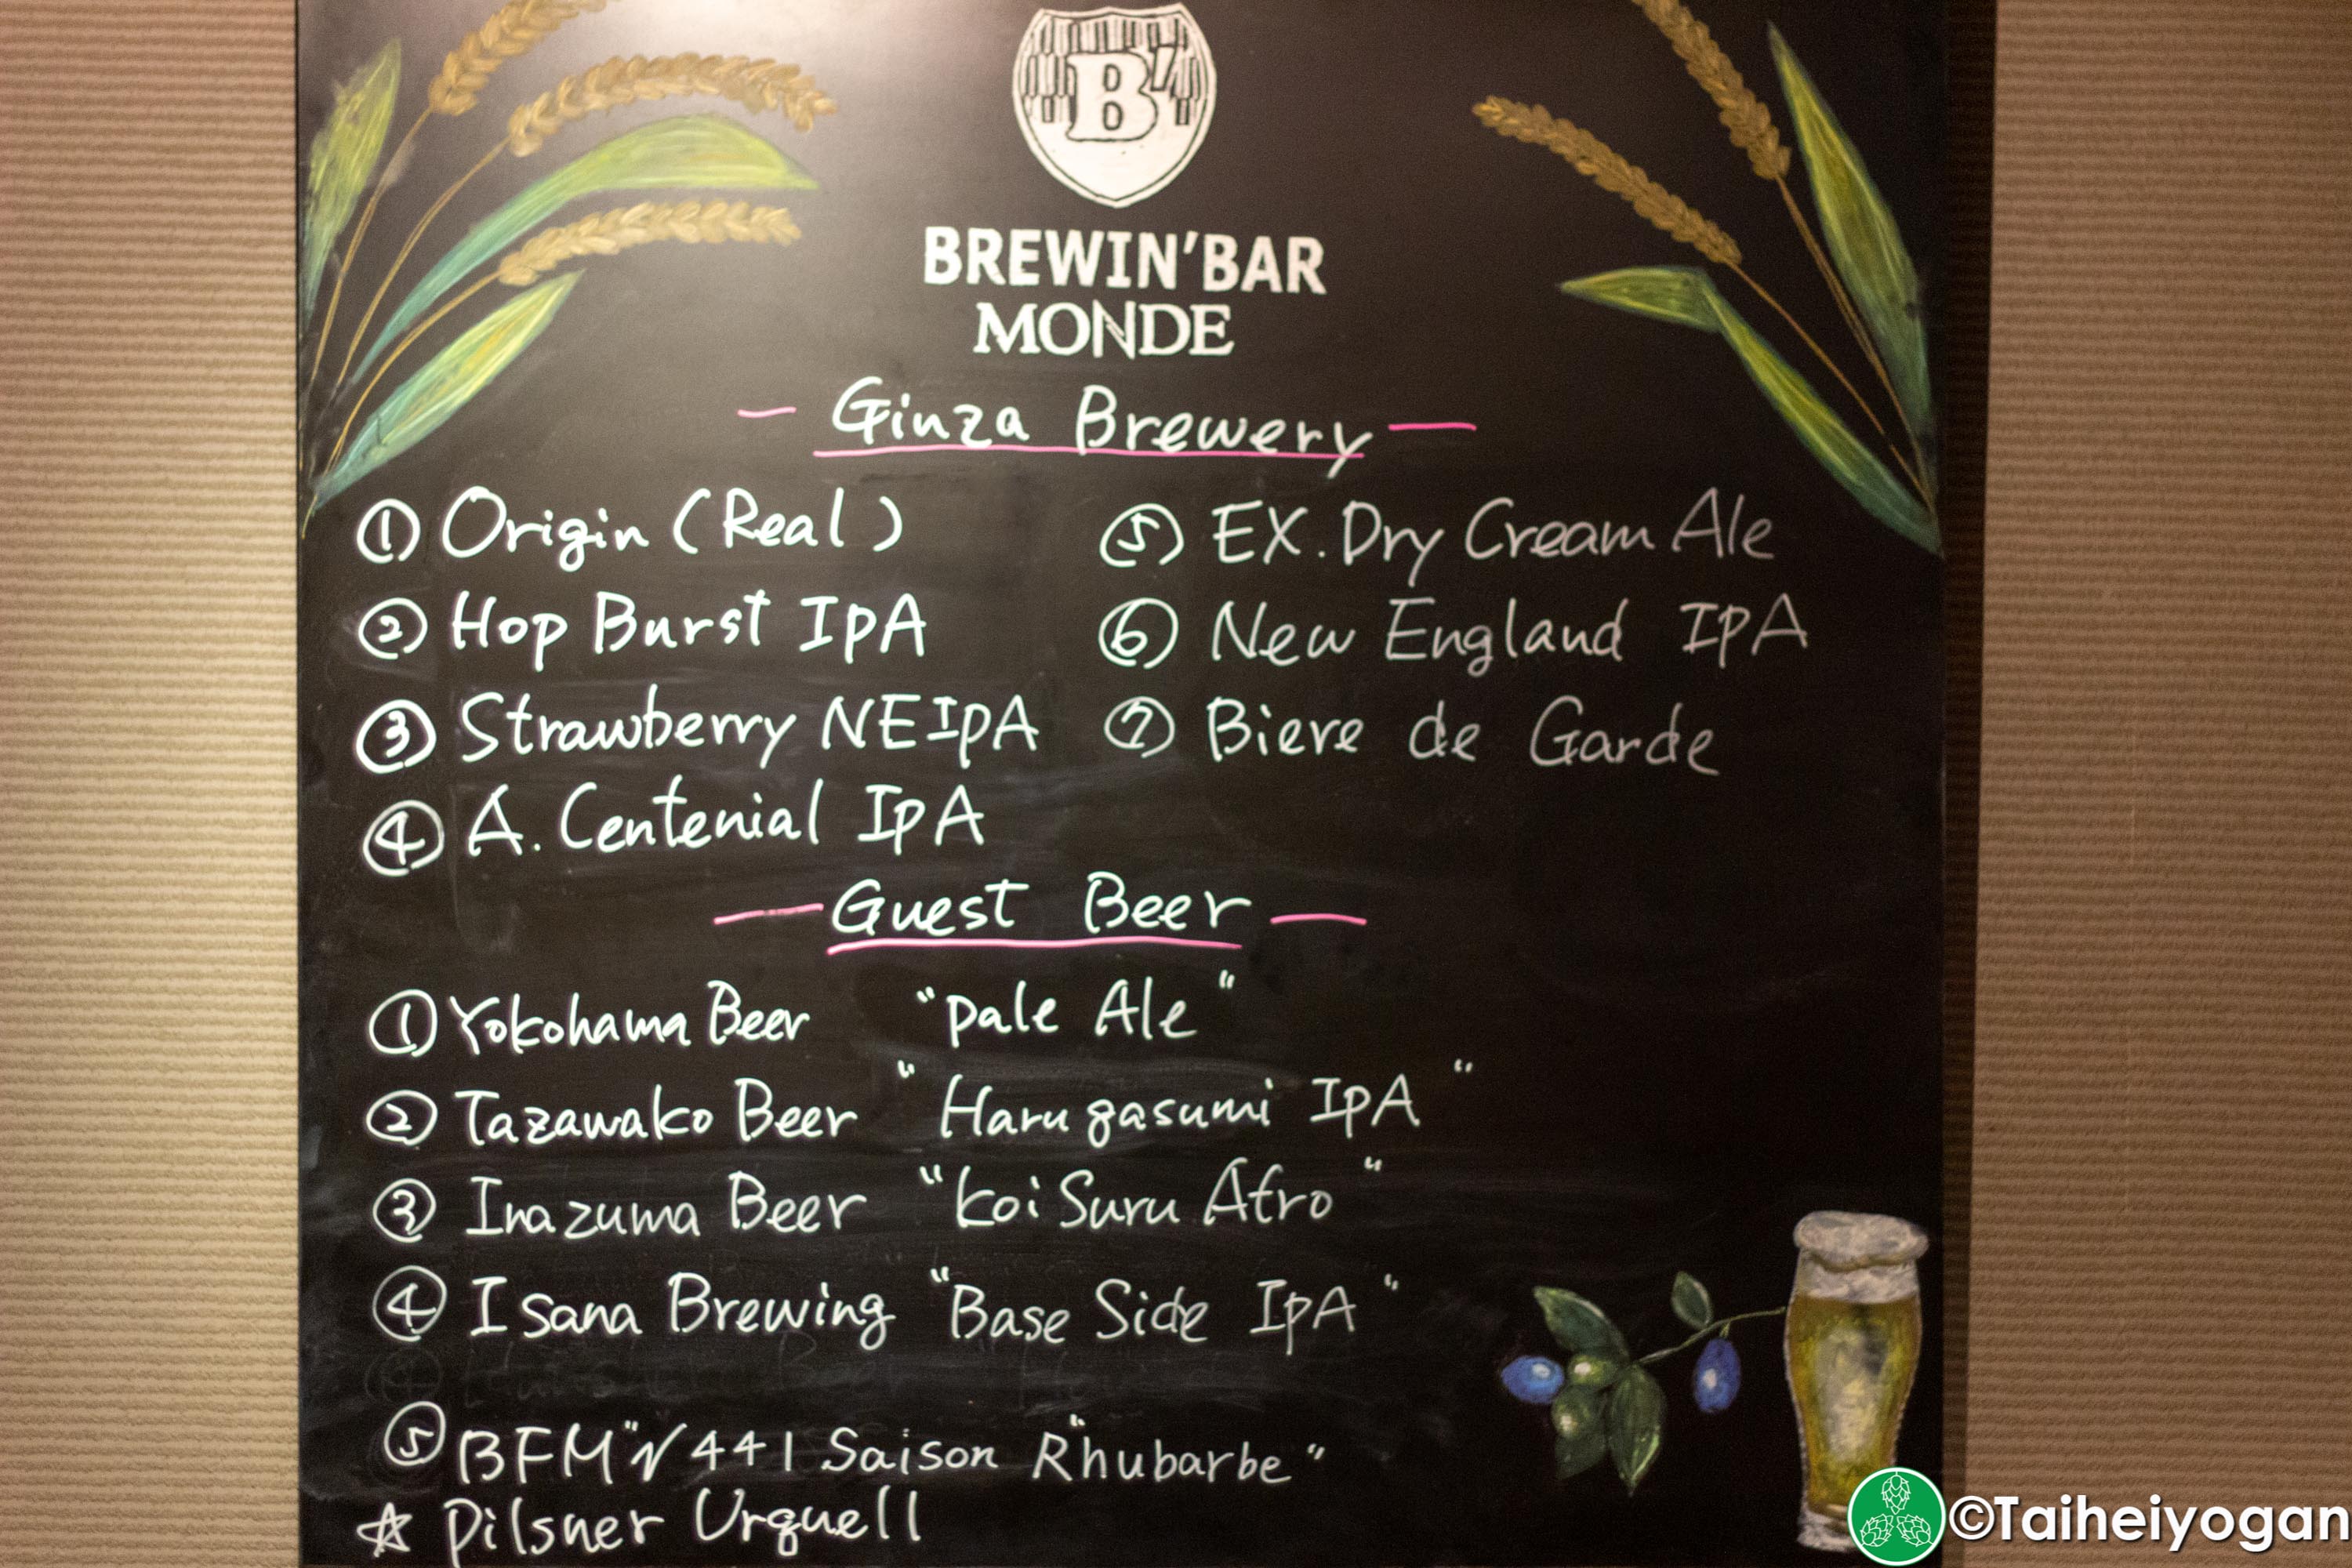 B'
BREWIN'BAR
MONDE
— Ginza Brewery —
① Origin (Real)
② Hop Burst IPA
③ Strawberry NEIPA
④ A. Centenial IPA
⑤ EX. Dry Cream Ale
⑥ New England IPA
⑦ Biere de Garde
— Guest Beer —
① Yokohama Beer "pale Ale"
② Tazawako Beer "Harugasumi IPA"
③ Inazuma Beer "Koi Suru Afro"
④ Isana Brewing "Base Side IPA"
⑤ BFM "√441 Saison Rhubarbe"
☆ Pilsner Urquell
©Taiheiyogan